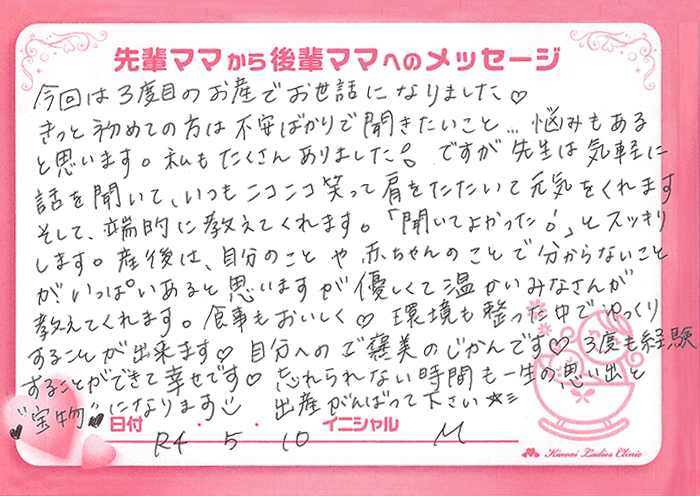 先輩ママから後輩ママへのメッセージ
今回は3度目のお産でお世話になりました♡
きっと初めての方は不安ばかりで聞きたいこと…悩みもある
と思います。私もたくさんありました! ですが先生は気軽に
話を聞いて、いつもニコニコ笑って肩をたたいて元気をくれます
そして、端的に教えてくれます。「聞いてよかった!」とスッキリ
します。産後は、自分のことや赤ちゃんのことで分からないこと
がいっぱいあると思いますが優しくて温かいみなさんが
教えてくれます。食事もおいしく♡ 環境も整った中でゆっくり
することが出来ます♡ 自分へのご褒美のじかんです♡ 3度も経験
することができて幸せです♡ 忘れられない時間も一生の思い出と
♥"宝物"♥になります☺ 出産がんばって下さい★ミ
日付 R4・5・10 イニシャル M
Kawai Ladies Clinic